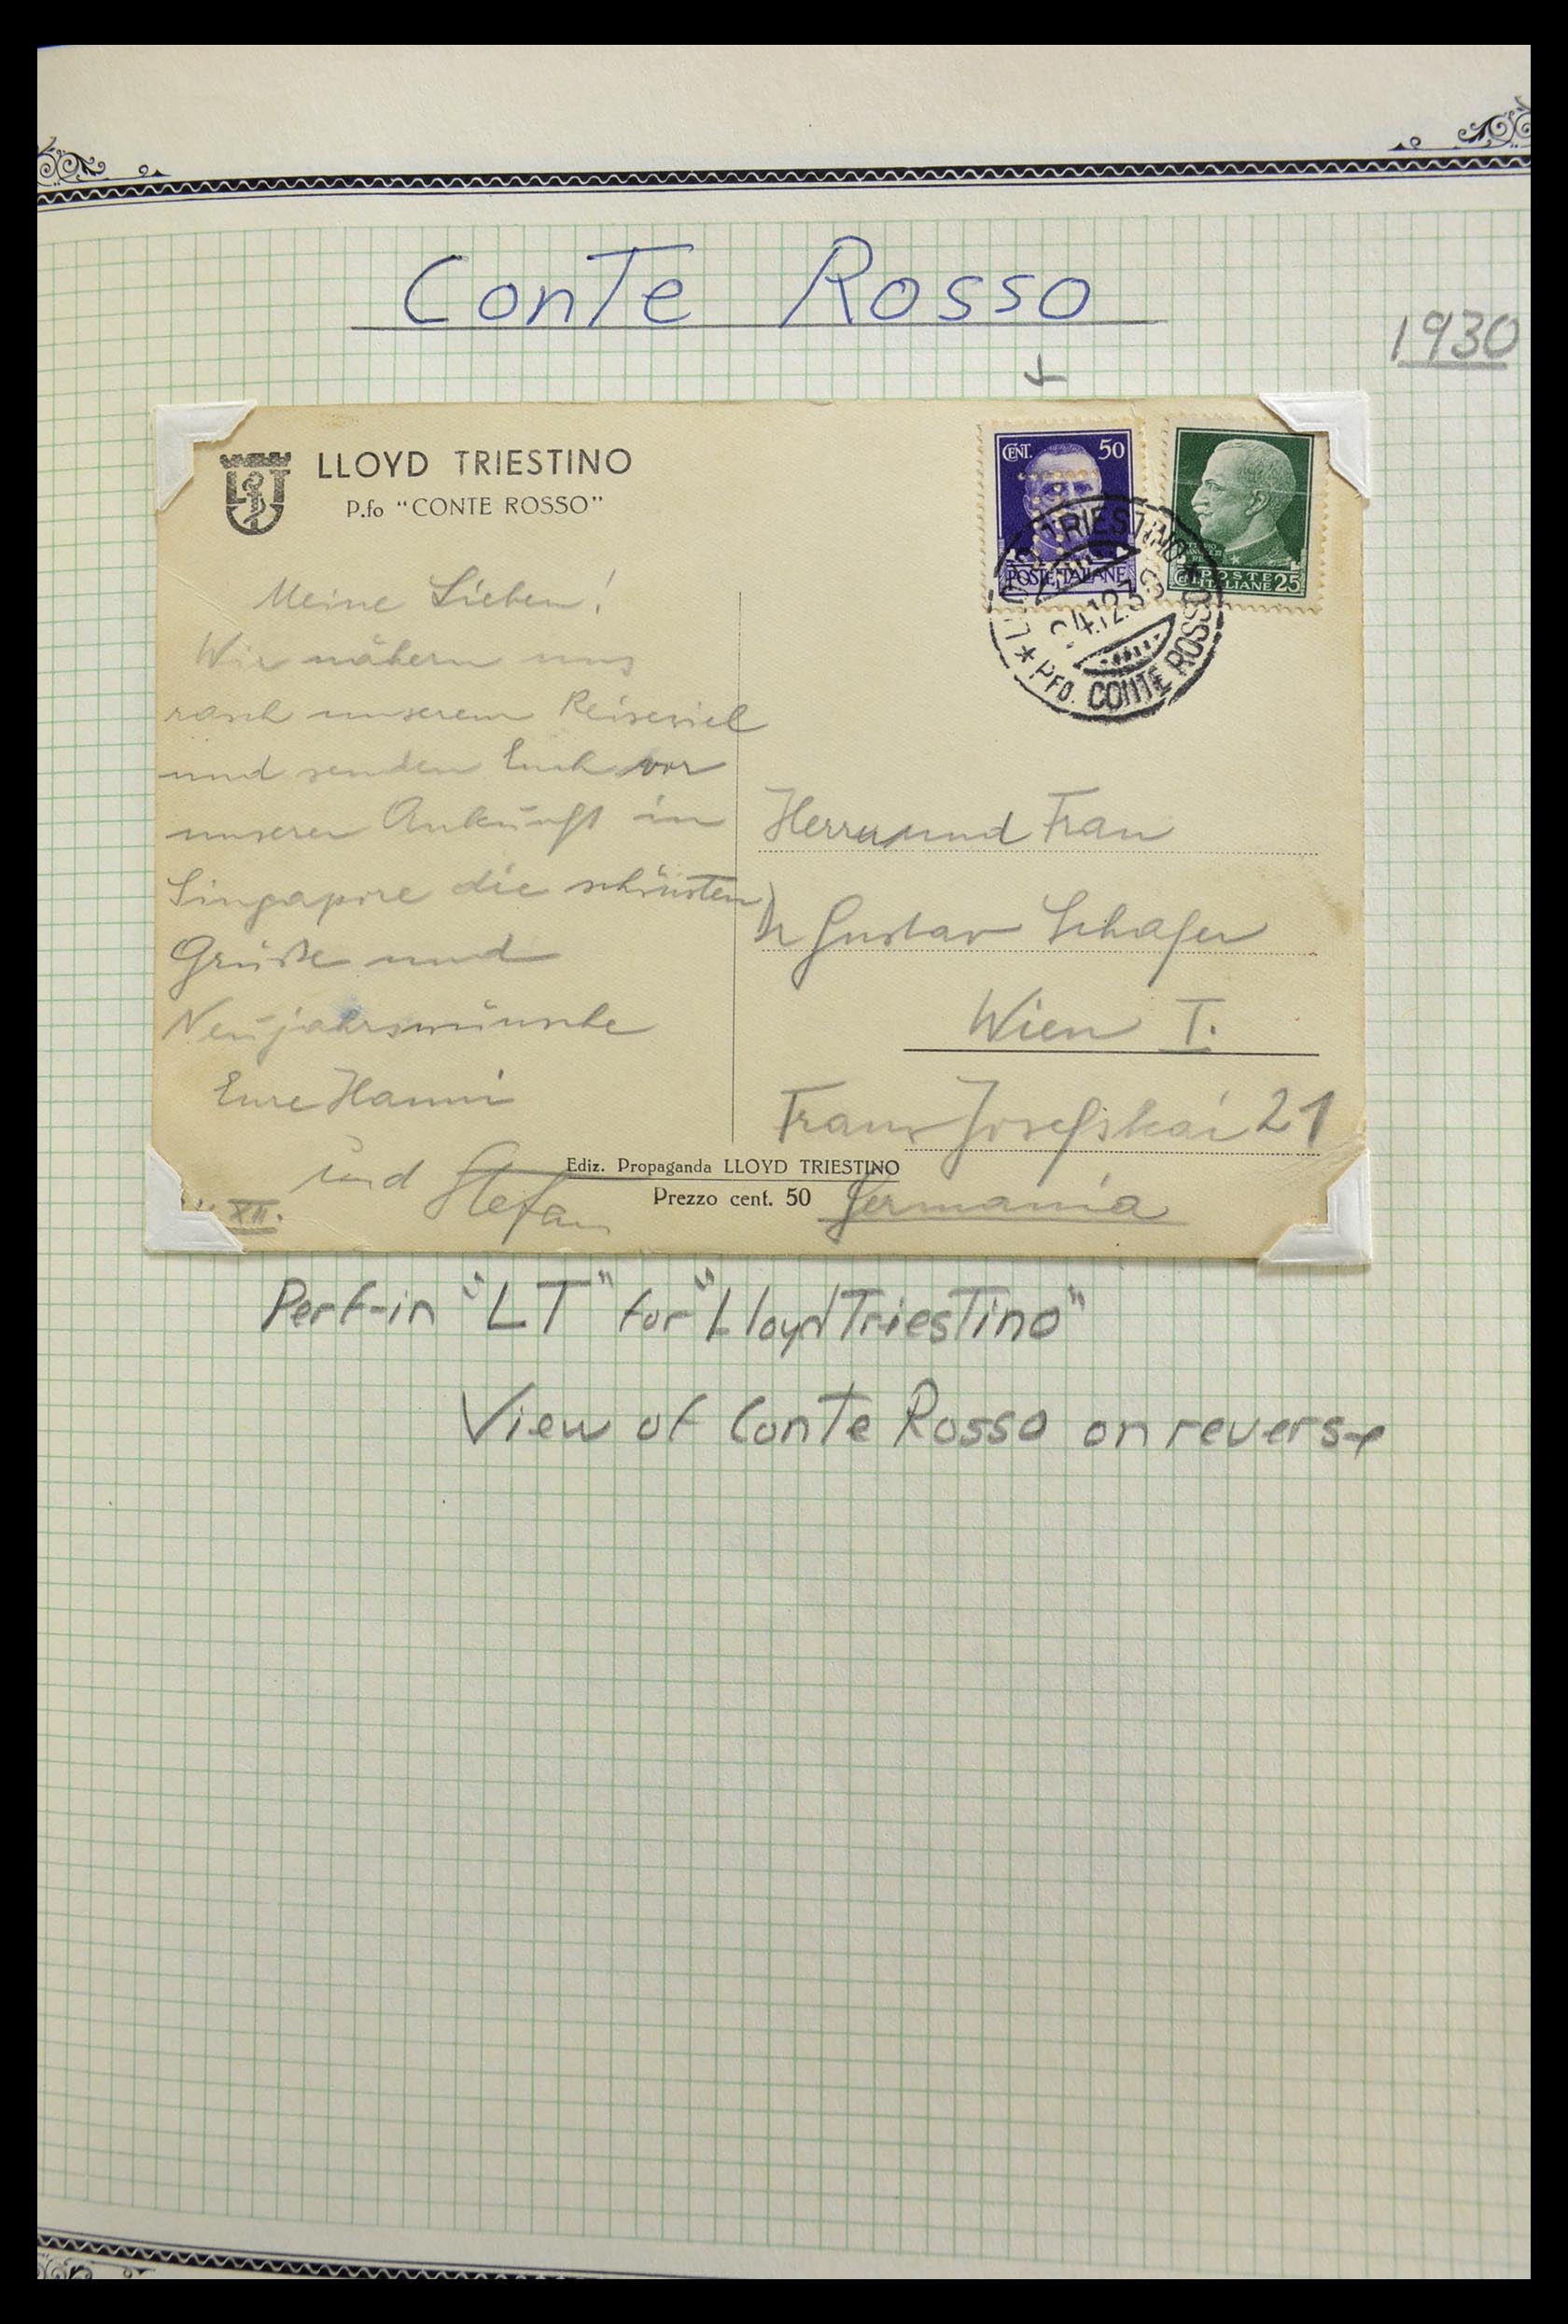 Conte Rosso
1930
LLOYD TRIESTINO
P.fo "CONTE ROSSO"
CENT. 50
POSTE ITALIANE
POSTE
ITALIANE 25
TRIESTINO
PFO. CONTE ROSSO
Meine Lieben!
Wir nähern uns
rasch unserem Reiseziel
und senden Euch vor
unserer Ankunft in
Singapore die schönsten
Grüße und
Neujahrswünsche
Eure Hanni
und Stefan
XII.
Herrn und Frau
Dr Gustav Schafer
Wien I.
Franz Josefskai 21
Germania
Ediz. Propaganda LLOYD TRIESTINO
Prezzo cent. 50
Perf-in "LT" for "Lloyd Triestino"
View of Conte Rosso on reverse